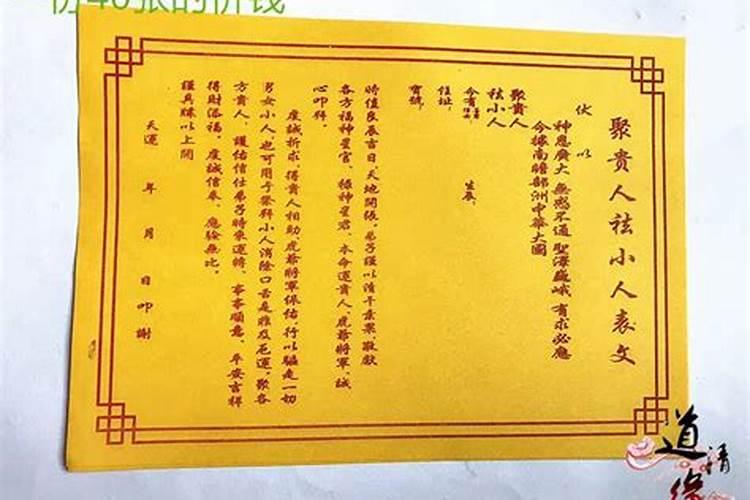 份40张的价钱
聚貴人祛小人表文
伏以
神恩廣大 無惑不通 聖澤巍峨 有求必應
今據南瞻部洲中華大國
聚貴人
祛小人
今有
住址
寶號
生辰
時值良辰吉日，天地開張，弟子謹以清干素果 敬献
各方福神星官、祿神星君、本命運貴人、虎爺將軍，誠
心叩拜。
虔誠祈求，得貴人相助虎爺將軍保佑 行以驅走一切
男女小人，也可用于祭拜小人消除口舌是非及厄運，聚各
方貴人，護佑信仕弟子時來運轉、事事順意、平安吉祥
得財添福。虔誠信奉，應驗無比。
謹具牒以上聞
天運 年 月 日叩謝
道
清
缘